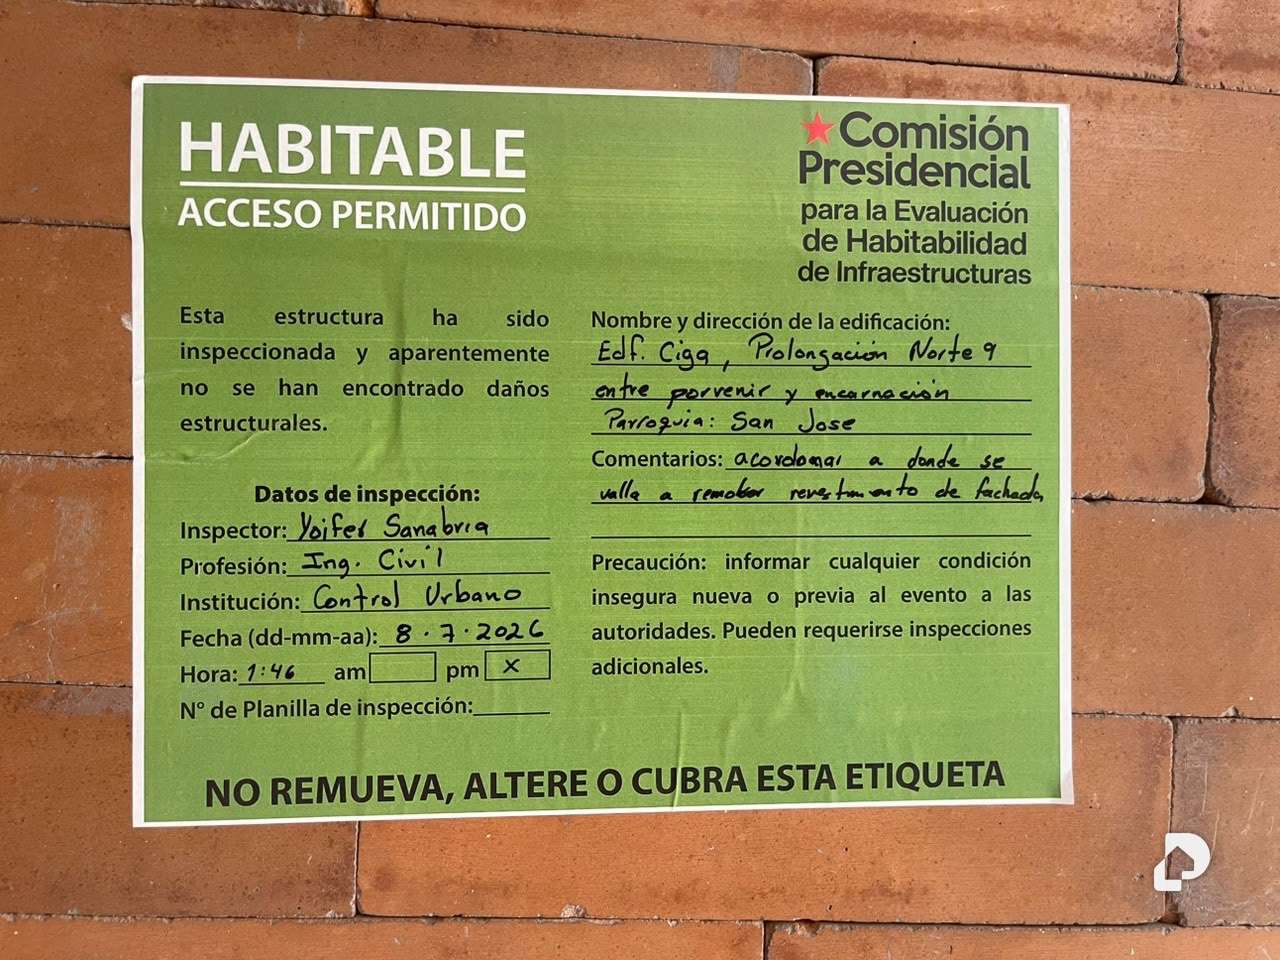 HABITABLE
ACCESO PERMITIDO
Comisión
Presidencial
para la Evaluación
de Habitabilidad
de Infraestructuras
Esta estructura ha sido
inspeccionada y aparentemente
no se han encontrado daños
estructurales.
Datos de inspección:
Inspector: Yoifer Sanabria
Profesión: Ing. Civil
Institución: Control Urbano
Fecha (dd-mm-aa): 8.7.2026
Hora: 1:46 am pm x
N° de Planilla de inspección:
Nombre y dirección de la edificación:
Edf. Ciga, Prolongación Norte 9
entre porvenir y encarnación
Parroquia: San Jose
Comentarios: acordomar a donde se
valla a remober revestimiento de fachada
Precaución: informar cualquier condición
insegura nueva o previa al evento a las
autoridades. Pueden requerirse inspecciones
adicionales.
NO REMUEVA, ALTERE O CUBRA ESTA ETIQUETA